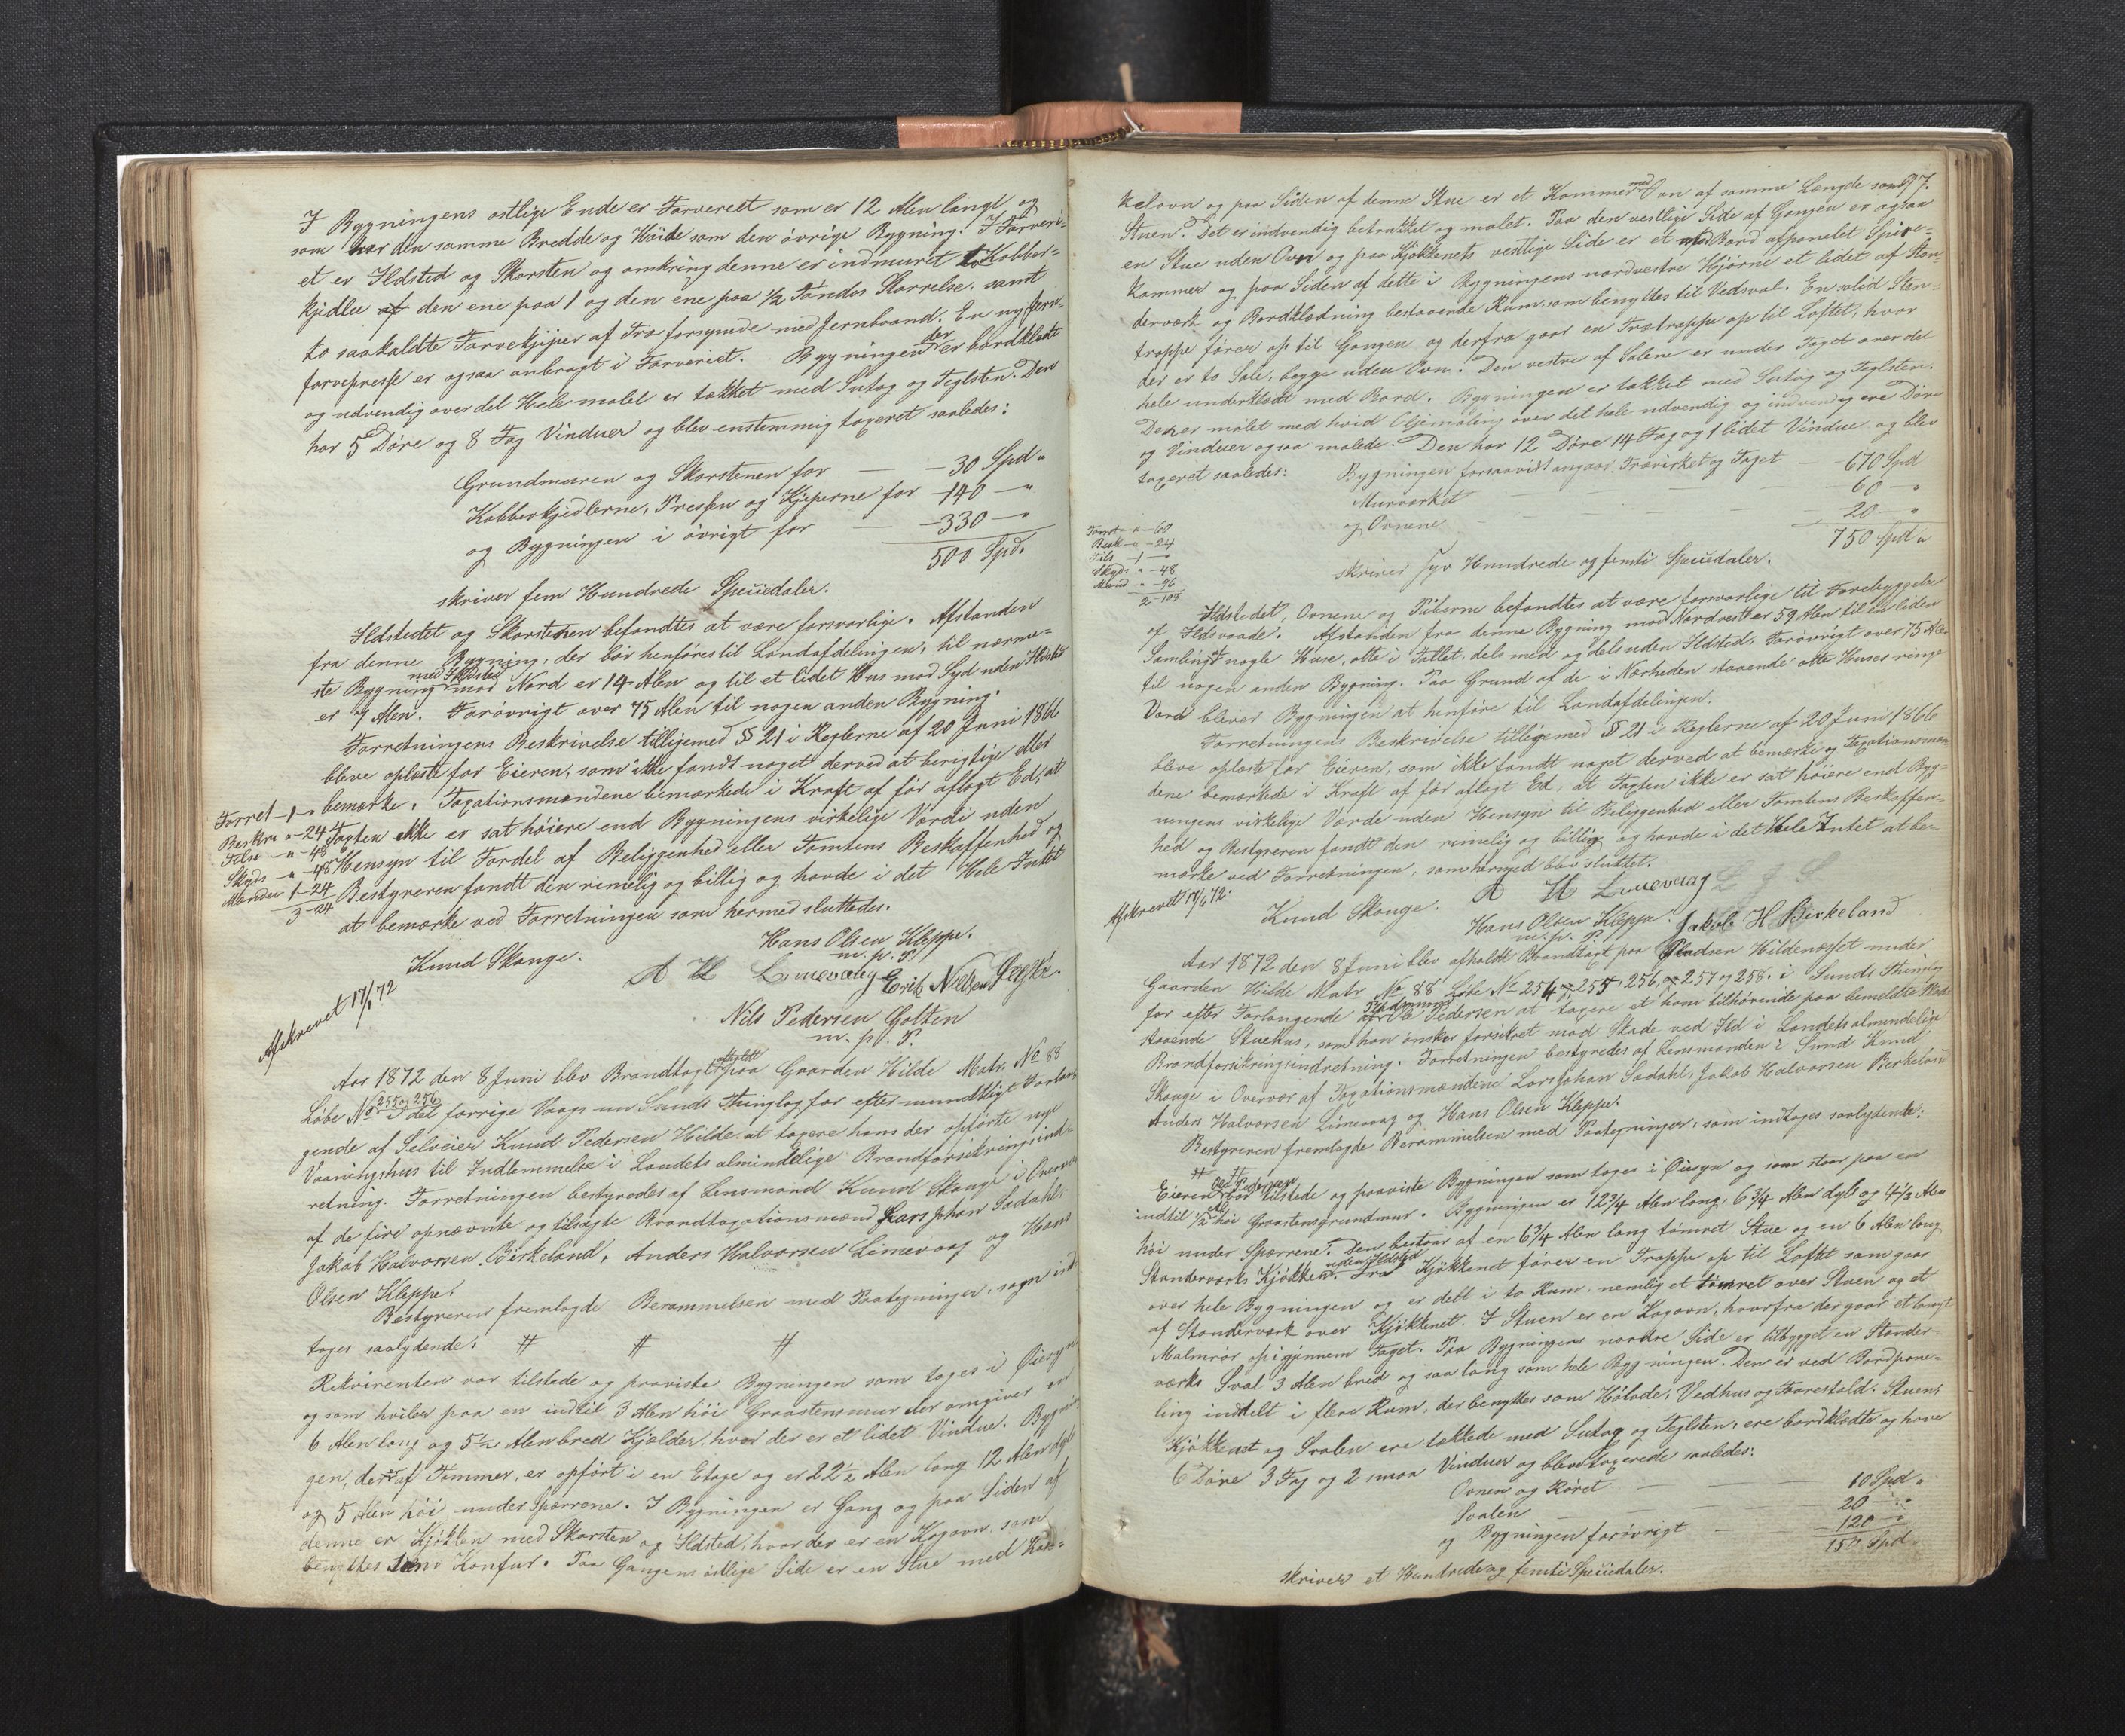 I Bygningens østlige Ende er Farveriet som er 12 Alen langt og
som har den samme Bredde og Høide som den øvrige Bygning. I Farveri-
et er Ildsted og Skorsten og omkring denne er indmuret to Kobber-
kjedler af den ene paa 1 og den ene paa 1/2 Tøndes Størrelse. samt
to saakaldte Farvekjyper af Træ forsynede med Jernbaand. En ny
farvepresse er ogsaa anbragt i Farveriet. Bygningen der er bordklædt
og udvendig over det Hele malet er tækket med Sutag og Teglsten. Den
har 5 Døre og 8 Fag Vinduer og blev enstemmig taxeret saaledes:
Grundmuren og Skorstenen for — - 30 Spd "
Kobberkjedlerne, Pressen og Kjyperne for - 140 — "
og Bygningen i øvrigt for — - 330 — "
500 Spd.
skriver fem Hundrede Speciedaler.
Ildstedet og Skorstenen befandtes at være forsvarlige. Afstanden
fra denne Bygning, der bør henføres til Landafdelingen, til nærme-
ste Bygning med Ildsted mod Nord er 14 Alen og til et lidet Hus mod Syd uden Ildsted
er 7 Alen. Forøvrigt over 75 Alen til nogen anden Bygning.
Forretningens Beskrivelse tilligemed § 21 i Reglerne af 20 Juni 1866
bleve oplæste for Eieren, som ikke fandt noget derved at berigtige eller
bemærke. Taxationsmændene bemærkede i Kraft af før aflagt Ed, at
Taxten ikke er sat høiere end Bygningens virkelige Værdi uden
Hensyn til Fordel af Beliggenhed eller Tomtens Beskaffenhed og
Bestyreren fandt den rimelig og billig og havde i det Hele Intet
at bemærke ved Forretningen som hermed sluttedes.
Forret - 1 - "
Beskr " - 24
" - 48
Skyds " - 48
Mænden 1 - 24
3 - 24
Knud Skauge.
Hans Olsen Kleppe.
m. p. P.
A H Limevaag Erik Nielsen
Nils Pedersen Golten
m. p. P.
Afskrevet 17/7 72
Aar 1872 den 8 Juni blev Brandtaxt afholdt paa Gaarden Hilde Matr. No 88
Løbe No 255 og 256 i det forrige Vaags nu Sunds Thinglag for efter mundtligt Forlan-
gende af Selveier Knud Pedersen Hilde at taxere hans der opførte nye
Vaaningshus til Indlemmelse i Landets almindelige Brandforsikringsind-
retning. Forretningen bestyredes af Lensmand Knud Skauge i Overvær
af de fire opnævnte og tilsagte Brandtaxationsmænd Lars Johan Sødahl,
Jakob Halvorsen Birkeland, Anders Halvorsen Limevaag og Hans
Olsen Kleppe.
Bestyreren fremlagde Berammelsen med Paategninger, som ind-
tages saalydende: # # #
Rekvirenten var tilstede og paaviste Bygningen som toges i Øiesyn
og som hviler paa en indtil 3 Alen høi Graastensmur der omgiver en
6 Alen lang og 5 1/2 Alen bred Kjelder, hvor der er et lidet Vindue. Bygnin-
gen, der er af Tømmer, er opført i en Etage og er 22 1/2 Alen lang 12 Alen dyb
og 5 Alen høi under Spærrene. I Bygningen er Gang og paa Siden af
denne er Kjøkken med Skorsten og Ildsted, hvor der er en Kogovn som
benyttes som Komfur. Paa Gangens østlige Side er en Stue med Kak-
97.
kelovn og paa Siden af denne Stue er et Kammer med Ovn af samme Længde som
Stuen. Det er indvendig betrækket og malet. Paa den vestlige Side af Gangen er ogsaa
en Stue uden Ovn og paa Kjøkkenets vestlige Side er et med Bord afpanelet Spise-
kammer og paa Siden af dette i Bygningens nordvestre Hjørne et lidet af Stan-
derværk og Bordklædning bestaaende Rum, som benyttes til Vedsval. En solid Sten-
trappe fører op til Gangen og derfra gaar en Trætrappe op til Loftet, hvor
der er to Sale, begge uden Ovn. Den vestre af Salene er under Taget over det
hele underklædt med Bord. Bygningen er tækket med Sutag og Teglsten.
Den er malet med hvid Oljemaling over det hele udvendig og indvendig ere Døre
og Vinduer ogsaa malede. Den har 12 Døre 14 Fag og 1 lidet Vindue og blev
taxeret saaledes: Bygningen forsaavidt angaar Trævirket og Taget — - 670 Spd
Murværket 60 — "
og Ovnene 20 — "
750 Spd "
skriver Syv Hundrede og femti Speciedaler.
Forret " - 60
Besk - " - 24
1 — "
Skyds " - 48
Mænd - " - 96
2 - 108
Ildstedet, Ovnene og Piberne befandtes at være forsvarlige til Forebyggelse
af Ildsvaade. Afstanden fra denne Bygning mod Nordvest er 59 Alen til en liden
Samling af nogle Huse, otte i Tallet, dels med og dels uden Ildsted. Forøvrigt over 75 Alen
til nogen anden Bygning. Paa Grund af de i Nærheden staaende otte Huses ringe
Værd bliver Bygningen at henføre til Landafdelingen.
Forretningens Beskrivelse tilligemed § 21 i Reglerne af 20 Juni 1866
bleve oplæste for Eieren, som ikke fandt noget derved at bemærke og Taxationsmæn-
dene bemærkede i Kraft af før aflagt Ed, at Taxten ikke er sat høiere end Byg-
ningens virkelige Værde uden Hensyn til Beliggenhed eller Tomtens Beskaffen-
hed og Bestyreren fandt den rimelig og billig og havde i det Hele Intet at be-
mærke ved Forretningen, som hermed blev sluttet.
Afskrevet 17/7 72.
Knud Skauge. A H Limevaag L J S
Hans Olsen Kleppe. Jakob H Birkeland
m. p. P.
Aar 1872 den 8 Juni blev afholdt Brandtaxt paa Pladsen Hildenesset under
Gaarden Hilde Matr No 88 Løbe No 254, 255, 256, 257 og 258 i Sunds Thinglag
for efter Forlangende af Pladsmand Ole Pedersen at taxere et ham tilhørende paa bemeldte Plads
staaende Stuehus, som han ønsker forsikret mod Skade ved Ild i Landets almindelige
Brandforsikringsindretning. Forretningen bestyredes af Lensmanden i Sund Knud
Skauge i Overvær af Taxationsmændene Lars Johan Sødahl, Jakob Halvorsen Birkeland
Anders Halvorsen Limevaag og Hans Olsen Kleppe.
Bestyreren fremlagde Berammelsen med Paategninger, som indtages saalydende:
# #
Eieren Ole Pedersen var tilstede og paaviste Bygningen som toges i Øiesyn og som staar paa en
indtil 1/2 Al høi Graastensgrundmur. Bygningen er 12 3/4 Alen lang, 6 3/4 Alen dyb og 4 1/2 Alen
høi under Spærrene. Den bestaar af en 6 3/4 Alen lang tømret Stue og en 6 Alen lang
Standerværks Kjøkken uden Ildsted. Fra Kjøkkenet fører en Trappe op til Loftet som gaar
over hele Bygningen og er delt i to Rum, nemlig et tømret over Stuen og et
af Standerværk over Kjøkkenet. I Stuen er en Kogovn, hvorfra der gaar et langt
Malmrør op igjennem Taget. Paa Bygningens nordre Side er tilbygget en Stander-
værks Sval 3 Alen bred og saa lang som hele Bygningen. Den er ved Bordpane-
ling inddelt i flere Rum, der benyttes som Hølade, Vedhus og Faarestald. Stuen,
Kjøkkenet og Svalen ere tækkede med Sutag og Teglsten, ere bordklædte og have
6 Døre 3 Fag og 2 smaa Vinduer og bleve taxerede saaledes:
Ovnen og Røret — 10 Spd "
Svalen — 20 — "
og Bygningen forøvrigt — 120 — "
150 Spd "
skriver et Hundrede og femti Speciedaler.